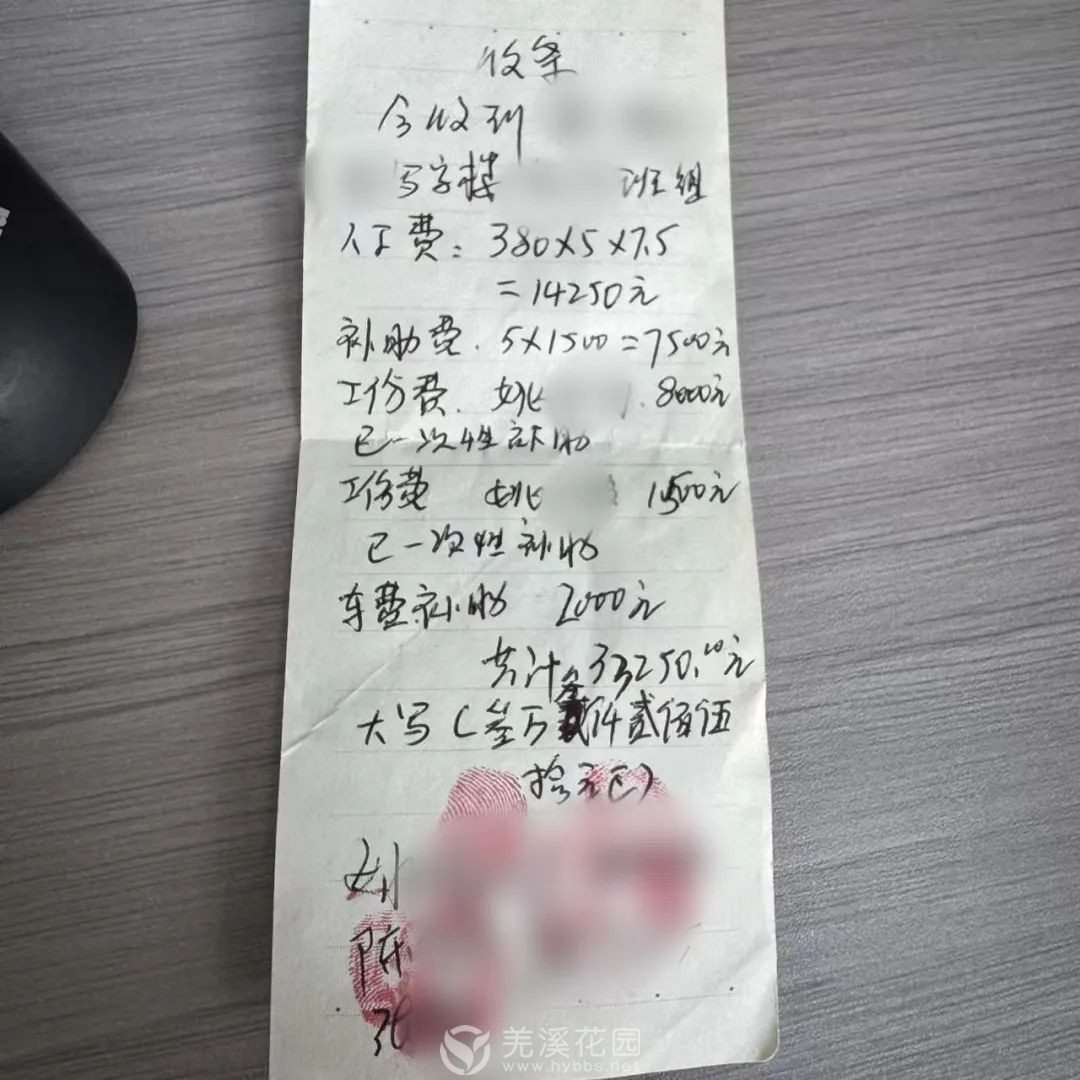 收条
今收到
写字楼 班组
人工费：380×5×7.5
=14250元
补助费.5×1500=7500元
工份费.姚 .8000元
已一次性补助
工份费 姚 1500元
已一次性补助
车费补助 2000元
共计33250.00元
大写（叁万叁仟贰佰伍
拾元正）
刘
陈
羌溪花园
www.hybbs.net